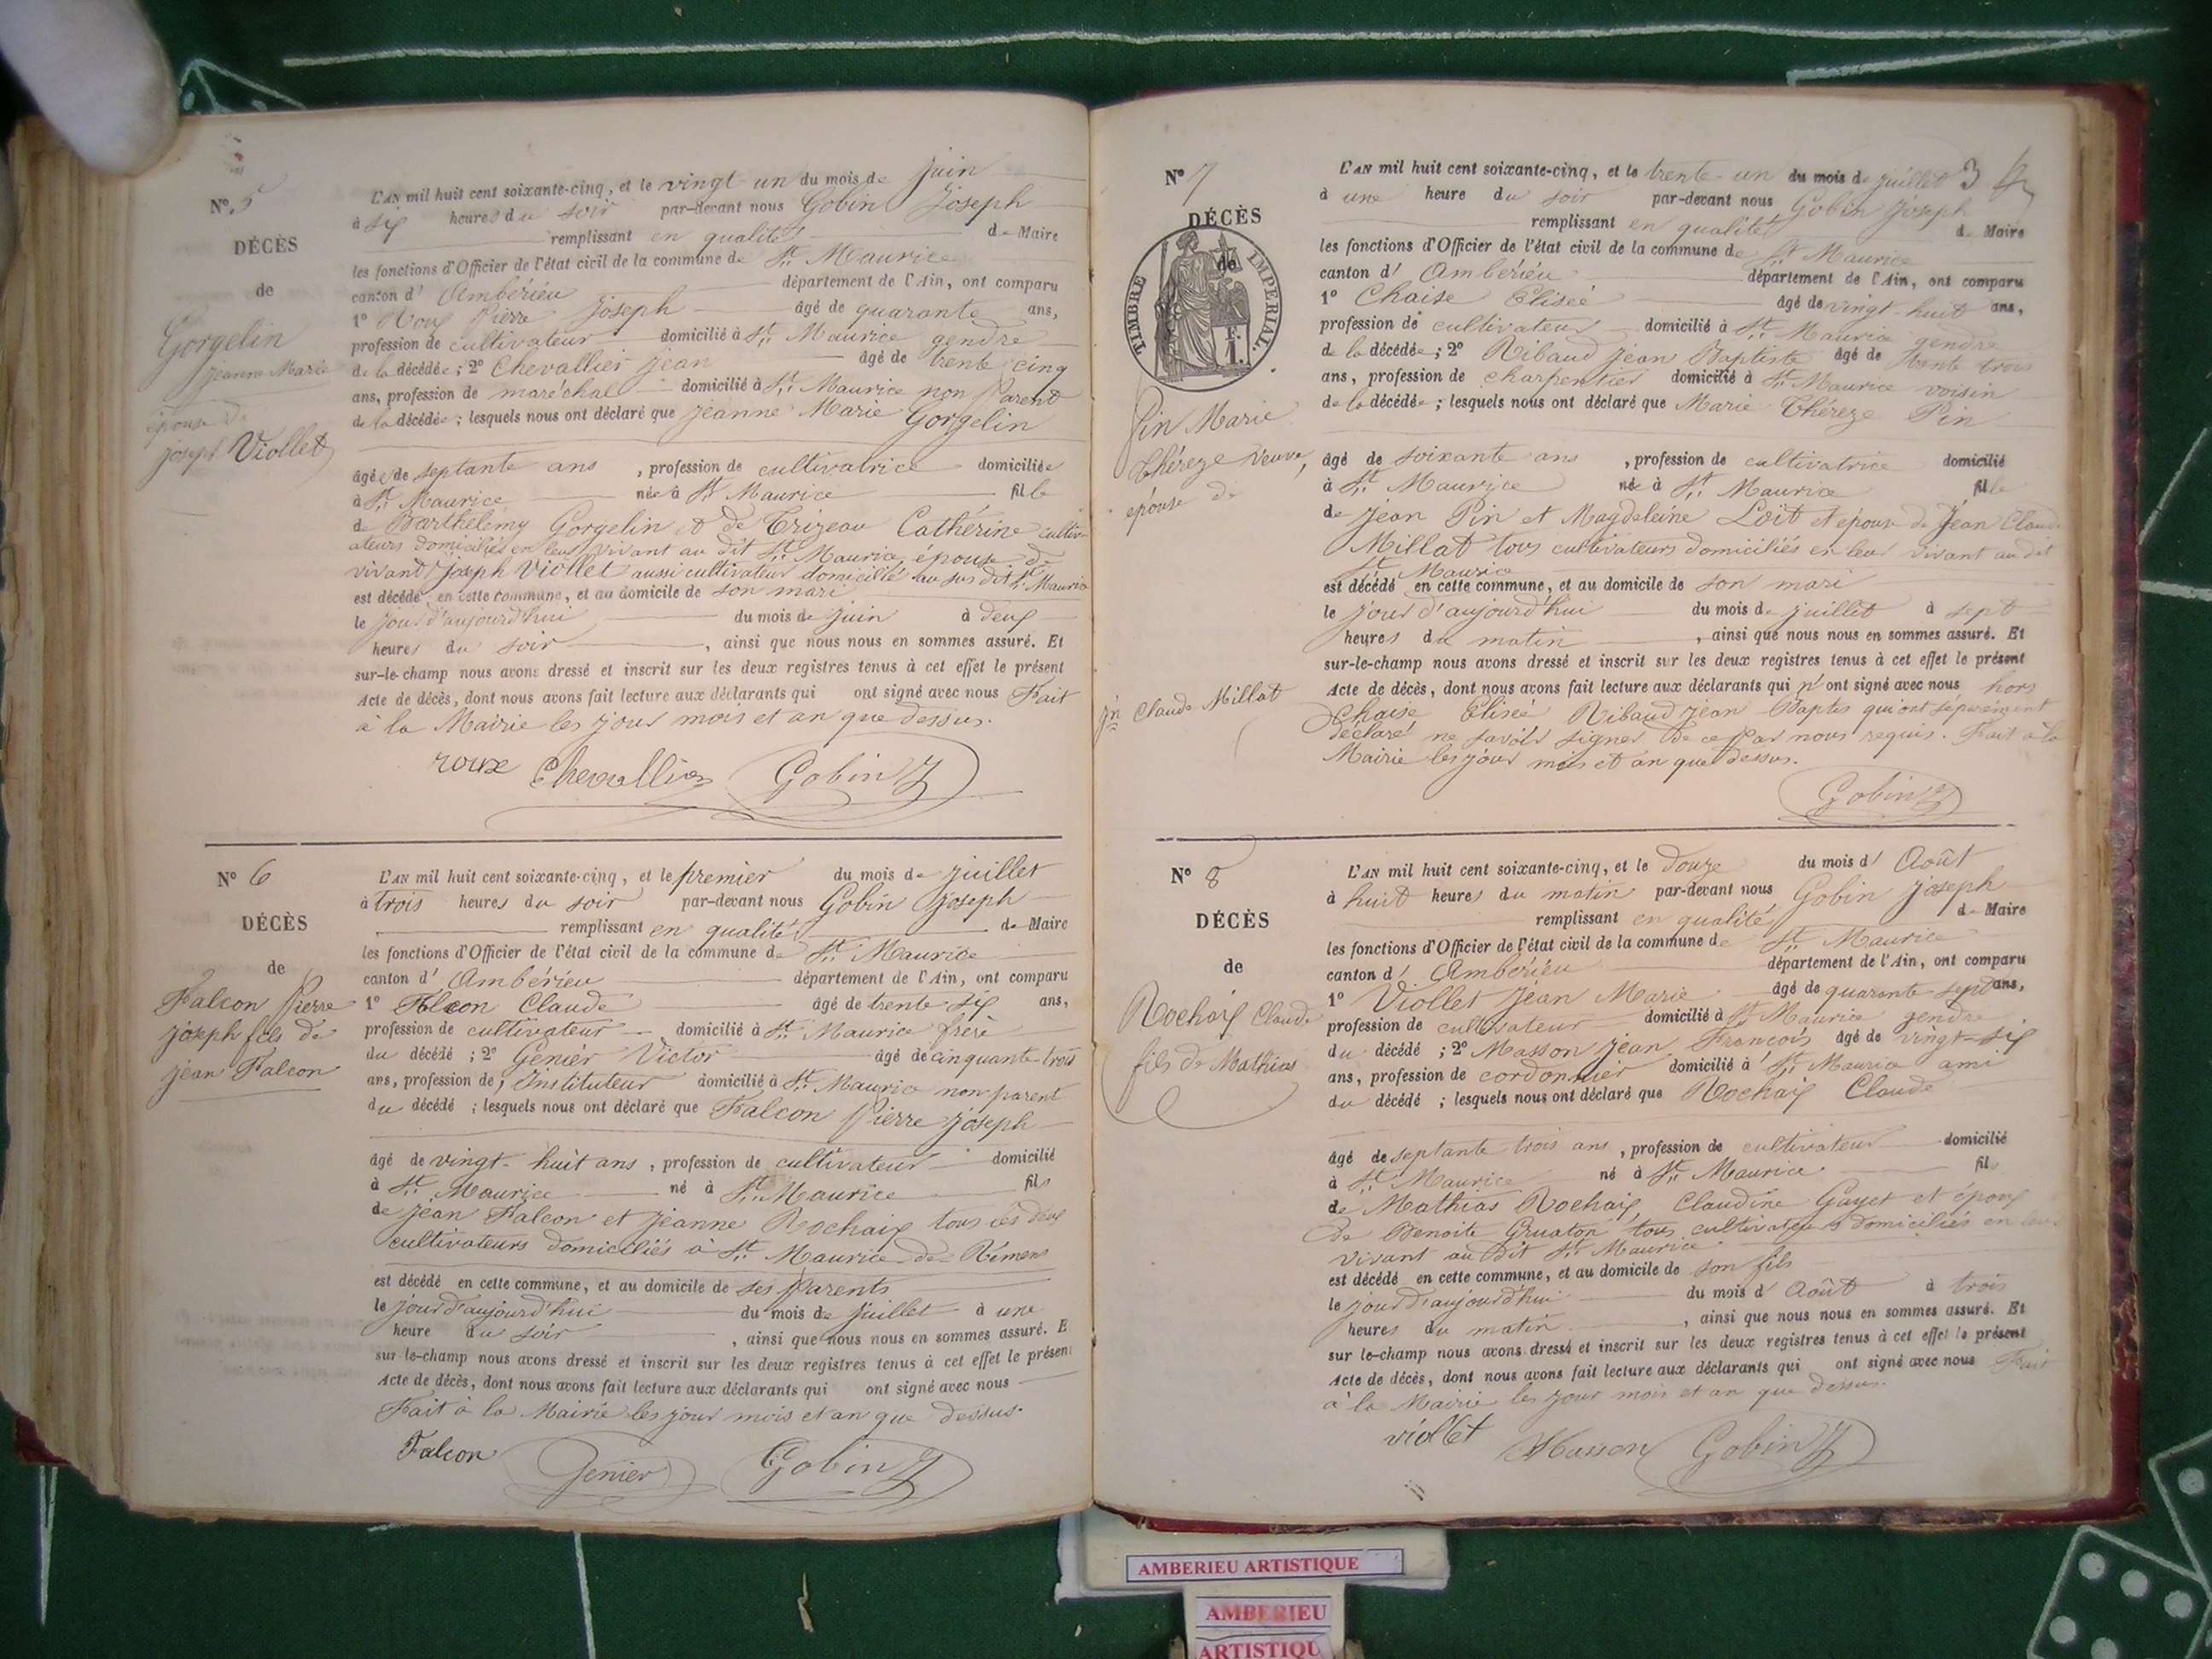 N° 5
DÉCÈS
de
Gorgelin
Jeanne Marie
épouse de
joseph Viollet
L'AN mil huit cent soixante-cinq, et le vingt un du mois de juin
à six heures du soir par-devant nous Gobin Joseph
remplissant en qualité de Maire
les fonctions d'Officier de l'état civil de la commune de St Maurice
canton d' Ambérieu département de l'Ain, ont comparu
1° Roux Pierre Joseph âgé de quarante ans,
profession de cultivateur domicilié à St Maurice gendre
de la décédée ; 2° Chevallier Jean âgé de trente cinq
ans, profession de maréchal domicilié à St Maurice non parent
de la décédée ; lesquels nous ont déclaré que Jeanne Marie Gorgelin
âgée de septante ans, profession de cultivatrice domiciliée
à St Maurice née à St Maurice fille
de Barthélemy Gorgelin et de Trizeau Catherine cultiv-
ateurs domiciliés en leur vivant au dit St Maurice, épouse de
vivant Joseph Viollet aussi cultivateur domicilié au sus dit St Maurice
est décédé en cette commune, et au domicile de son mari
le jour d'aujourd'hui du mois de juin à deux
heures du soir, ainsi que nous nous en sommes assuré. Et
sur-le-champ nous avons dressé et inscrit sur les deux registres tenus à cet effet le présent
Acte de décès, dont nous avons fait lecture aux déclarants qui ont signé avec nous Fait
à la Mairie les jour mois et an que dessus.
roux Chevallier Gobin J
N° 6
DÉCÈS
de
Falcon Pierre
joseph fils de
jean Falcon
L'AN mil huit cent soixante-cinq, et le premier du mois de juillet
à trois heures du soir par-devant nous Gobin Joseph
remplissant en qualité de Maire
les fonctions d'Officier de l'état civil de la commune de St Maurice
canton d' Ambérieu département de l'Ain, ont comparu
1° Falcon Claude âgé de trente six ans,
profession de cultivateur domicilié à St Maurice frère
du décédé ; 2° Genier Victor âgé de cinquante trois
ans, profession de, Instituteur domicilié à St Maurice non parent
du décédé ; lesquels nous ont déclaré que Falcon Pierre joseph
âgé de vingt-huit ans, profession de cultivateur domicilié
à St Maurice né à St Maurice fils
de Jean Falcon et Jeanne Rochaix tous les deux
cultivateurs domiciliés à St Maurice-de-Rémens
est décédé en cette commune, et au domicile de ses parents
le jour d'aujourd'hui du mois de juillet à une
heure du soir, ainsi que nous nous en sommes assuré. E
sur-le-champ nous avons dressé et inscrit sur les deux registres tenus à cet effet le présent
Acte de décès, dont nous avons fait lecture aux déclarants qui ont signé avec nous
Fait à la Mairie les jour mois et an que dessus.
Falcon Genier Gobin J
N° 7
DÉCÈS
de
TIMBRE IMPÉRIAL
Pin Marie
Théreze veuve,
épouse de
jn Claude Millat
L'AN mil huit cent soixante-cinq, et le trente-un du mois de juillet 3
à une heure du soir par-devant nous Gobin Joseph
remplissant en qualité de Maire
les fonctions d'Officier de l'état civil de la commune de St Maurice
canton d' Ambérieu département de l'Ain, ont comparu
1° Chaise Eliseé âgé de vingt-huit ans,
profession de cultivateur domicilié à St Maurice gendre
de la décédée ; 2° Ribaud Jean Baptiste âgé de trente trois
ans, profession de charpentier domicilié à St Maurice voisin
de la décédée ; lesquels nous ont déclaré que Marie Théreze Pin
âgé de soixante ans, profession de cultivatrice domicilié
à St Maurice née à St Maurice fille
de Jean Pin et Magdeleine Loit et épouse de Jean Claude
Millat tous cultivateurs domiciliés en leur vivant au dit
St Maurice
est décédé en cette commune, et au domicile de son mari
le jour d'aujourd'hui du mois de juillet à sept
heures du matin, ainsi que nous nous en sommes assuré. Et
sur-le-champ nous avons dressé et inscrit sur les deux registres tenus à cet effet le présent
Acte de décès, dont nous avons fait lecture aux déclarants qui n'ont signé avec nous hors
Chaise Eliseé Ribaud jean Baptes qui ont séparément
déclaré ne savoir signer de ce par nous requis. Fait à la
Mairie les jour mois et an que dessus.
Gobin J
N° 8
DÉCÈS
de
Rochaix Claude
fils de Mathias
L'AN mil huit cent soixante-cinq, et le douze du mois d' Août
à huit heures du matin par-devant nous Gobin Joseph
remplissant en qualité de Maire
les fonctions d'Officier de l'état civil de la commune de St Maurice
canton d' Ambérieu département de l'Ain, ont comparu
1° Viollet Jean Marie âgé de quarante-sept ans,
profession de cultivateur domicilié à St Maurice gendre
du décédé ; 2° Masson Jean François âgé de vingt-six
ans, profession de cordonnier domicilié à St Maurice ami
du décédé ; lesquels nous ont déclaré que Rochaix Claude
âgé de septante trois ans, profession de cultivateur domicilié
à St Maurice né à St Maurice fils
de Mathias Rochaix, Claudine Gayet et époux
de Benoite Gruaton, tous cultivateurs domiciliés en leur
vivant au dit St Maurice
est décédé en cette commune, et au domicile de son fils
le jour d'aujourd'hui du mois d' Août à trois
heures du matin, ainsi que nous nous en sommes assuré. Et
sur le-champ nous avons dressé et inscrit sur les deux registres tenus à cet effet le présent
Acte de décès, dont nous avons fait lecture aux déclarants qui ont signé avec nous Fait
à la Mairie les jour mois et an que dessus.
viollet Masson Gobin J
AMBERIEU ARTISTIQUE
AMBERIEU
ARTISTIQU